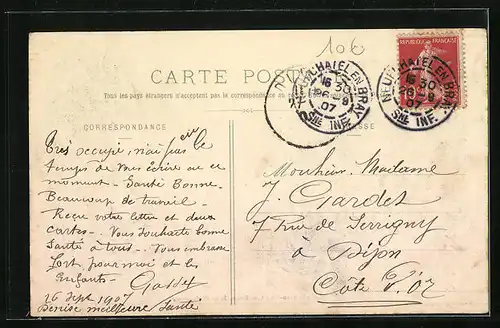 10€
REPUBLIQUE FRANÇAISE
CARTE POSTALE
NEUFCHATEL EN BRAY
16 30
26 - 9
07
SNE INF.
NEUFCHATEL EN BRAY
16 30
26 - 9
07
SNE INF.
Tous les pays étrangers n'acceptent pas la correspondance
CORRESPONDANCE
Très occupé, n'ai pas eu le
temps de vous écrire en ce
moment - Santé Bonne -
Beaucoup de travail -
Reçu votre lettre et deux
cartes - Vous souhaite bonne
santé à tous - Vous embrasse
fort pour moi et les
enfants -
26 Sept 1907
Denise meilleure santé
Monsieur, Madame
J. Gardet
7 Rue de Serrigny
à Dijon
Côte d'Or